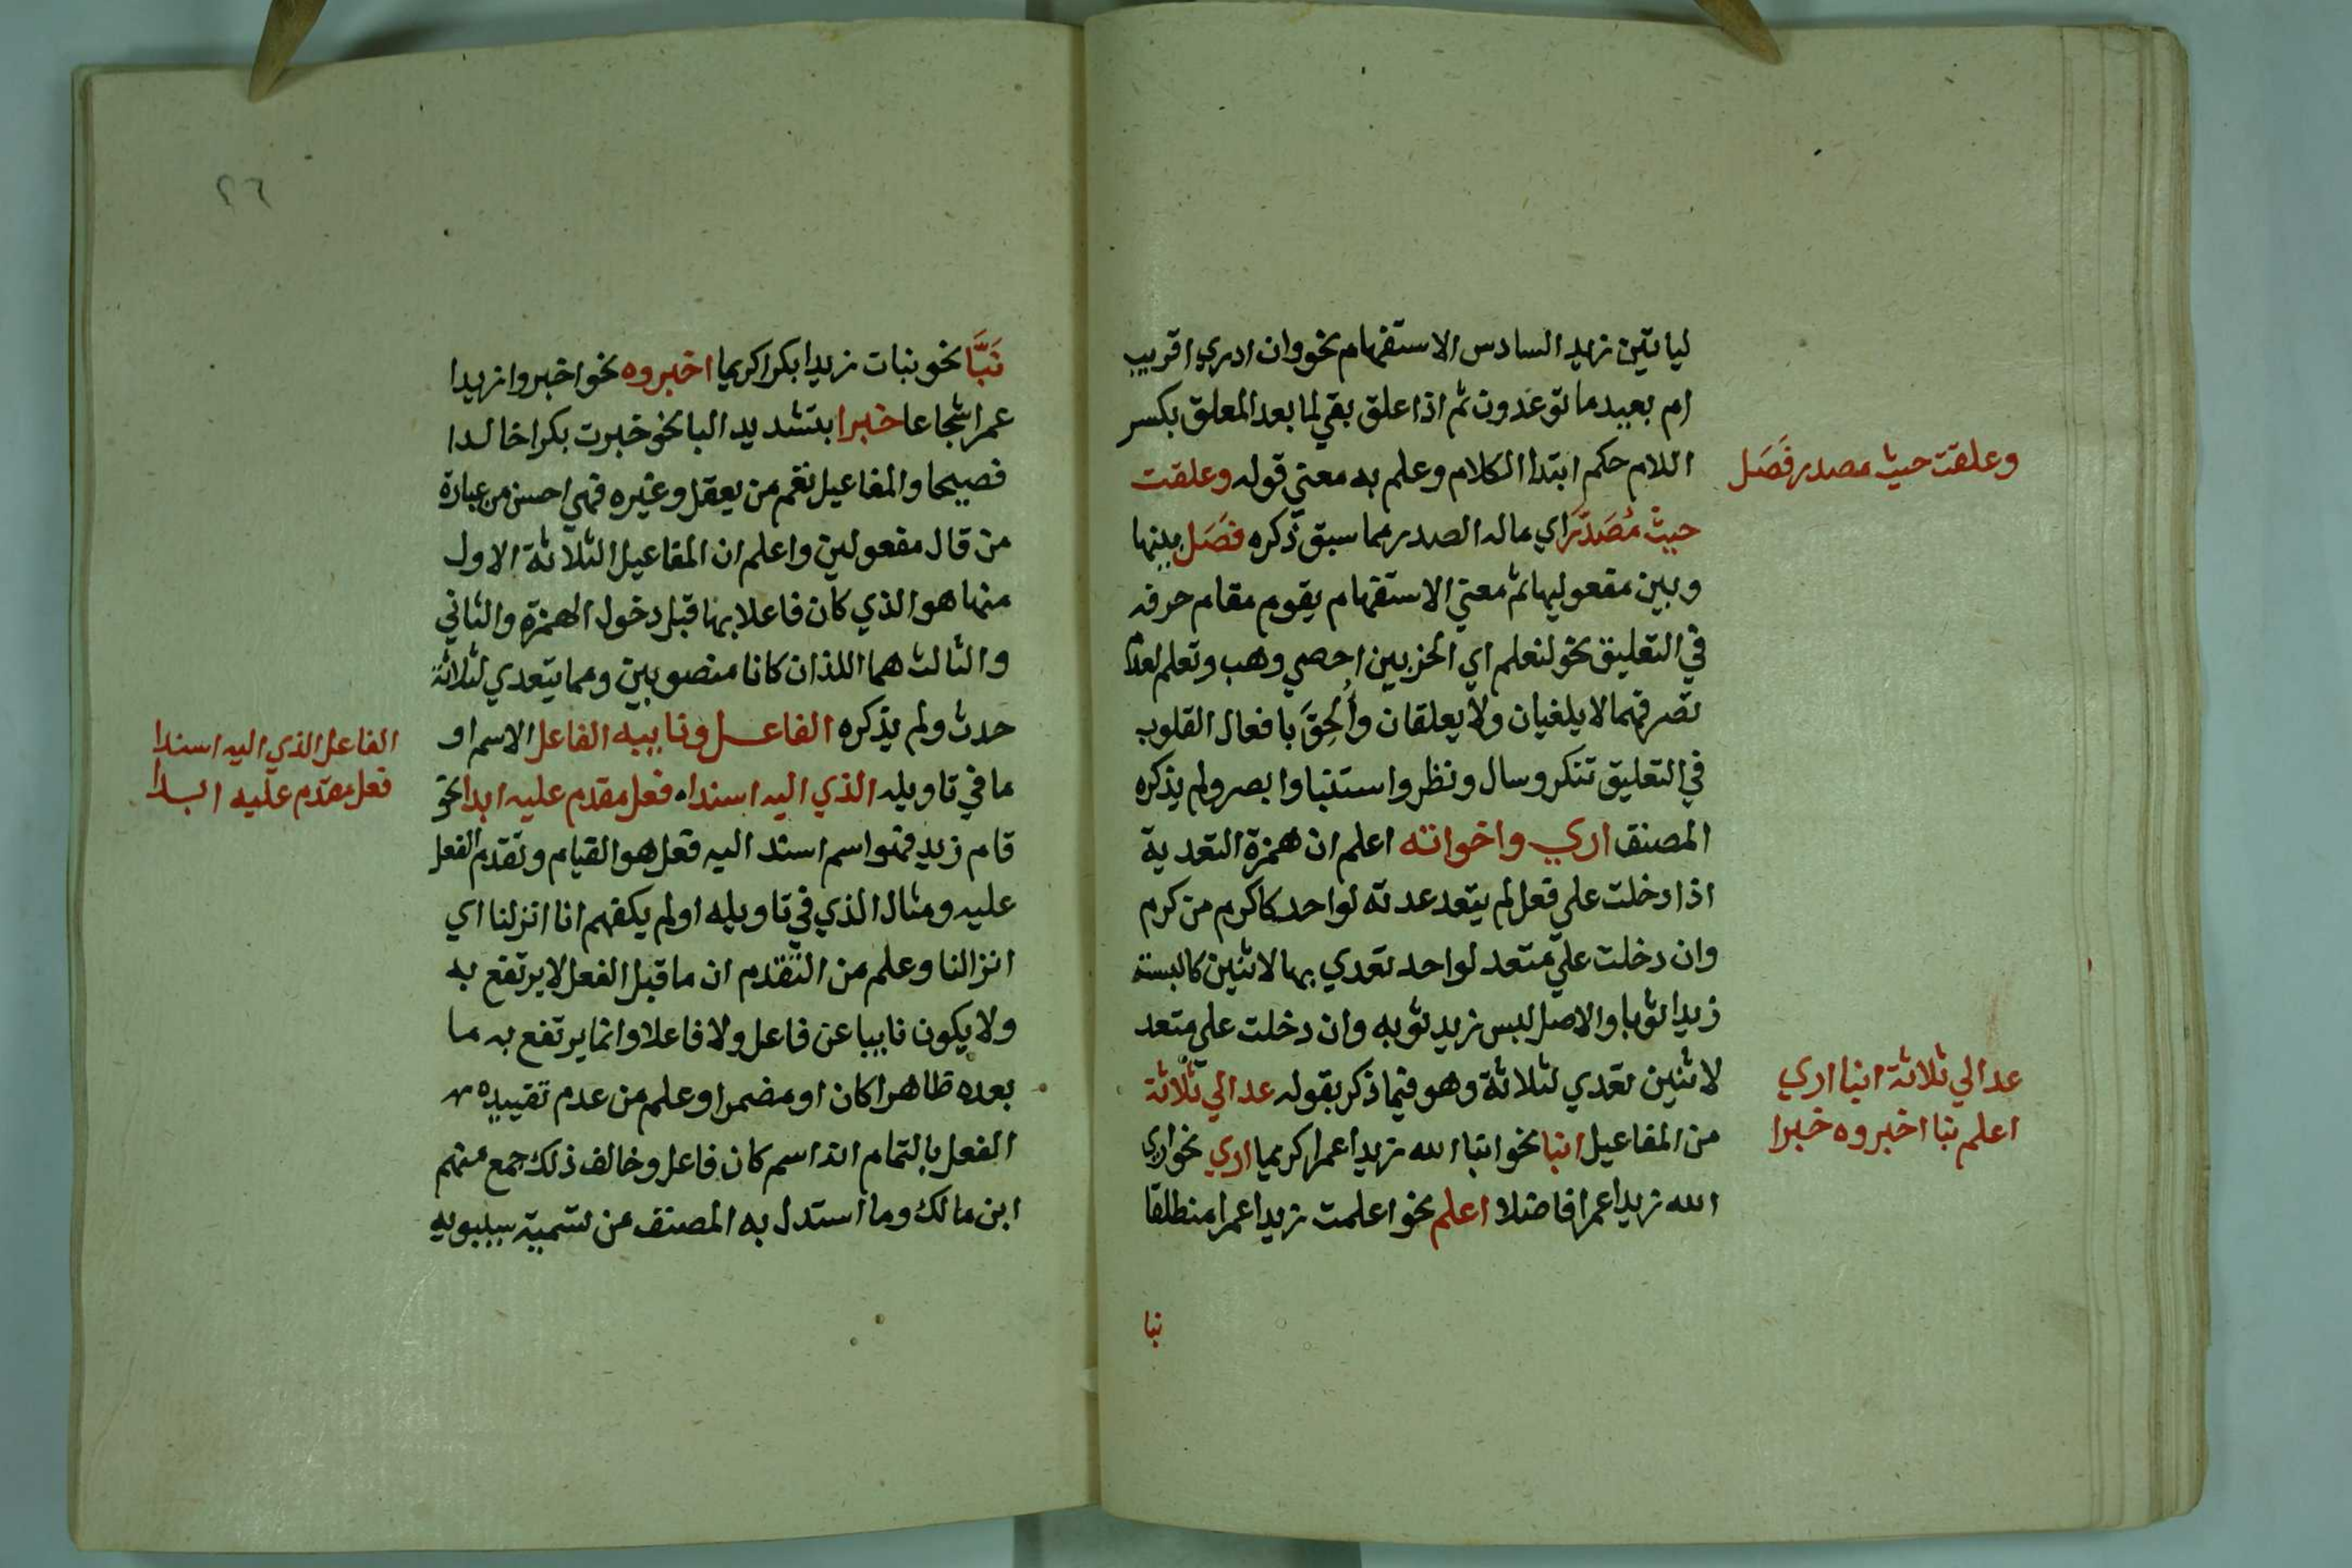 لياتين زيد السادس الاستفهام نحو وان ادري اقريب
ام بعيد ما توعدون ثم اذا علق بقي لما بعد المعلق بكسر
اللام حكم ابتدا الكلام وعلم به معني قوله وعلقت
وعلقت حيث مصدر فصل
حيث مُصَدَّرَا اي ماله الصدر مما سبق ذكره فَصَل بينها
وبين مفعوليها ثم معني الاستفهام يقوم مقام حرفه
في التعليق نحو لنعلم اي الحزبين احصي وهب وتعلم لعدم
تصرفهما لا يلغيان ولا يعلقان وأُلحِقَ بافعال القلوب
في التعليق تنكر وسال ونظر واستنبا وابصر ولم يذكره
المصنف اري واخواته اعلم ان همزة التعدية
اذا دخلت علي فعل لم يتعد عدته لواحد كاكرم من كرم
وان دخلت علي متعد لواحد تعدي بها لاثنين كالبسته
زيدا ثوبا والاصل لبس زيد ثوبه وان دخلت علي متعد
لاثنين تعدي لثلاثة وهو فيما ذكر بقوله عدا الي ثلاثة
عدا الي ثلاثة انبا اري
من المفاعيل انبا نحو انبا الله زيدا عمرا كريما اري نحو اري
اعلم نبا اخبروه خبرا
الله زيدا عمرا فاضلا اعلم نحو اعلمت زيدا عمرا منطلقا
نبا
٢٦
نَبَّا نحو نبات زيدا بكرا كريما اخبروه نحو اخبروا زيدا
عمرا شجاعا خبرا بتشديد البا نحو خبرت بكرا خالدا
فصيحا والمفاعيل تعم من يعقل وغيره فهي احسن من عبارة
من قال مفعولين واعلم ان المفاعيل الثلاثة الاول
منها هو الذي كان فاعلا بها قبل دخول الهمزة والثاني
والثالث هما اللذان كانا منصوبين ومما يتعدي لثلاثة
حدث ولم يذكره الفاعل ونايبه الفاعل الاسم او
الفاعل الذي اليه اسندا
ما في تاويله الذي اليه اسندا فعل مقدم عليه ابدا نحو
فعل مقدم عليه ابدا
قام زيد فهو اسم اسند اليه فعل هو القيام وتقدم الفعل
عليه ومثال الذي في تاويله اولم يكفهم انا انزلنا اي
انزالنا وعلم من التقدم ان ما قبل الفعل لا يرتفع به
ولا يكون نايبا عن فاعل ولا فاعلا وانما يرتفع به ما
بعده ظاهرا كان او مضمرا وعلم من عدم تقييده
الفعل بالتمام انه اسم كان فاعل وخالف ذلك جمع منهم
ابن مالك وما استدل به المصنف من تسمية سيبويه